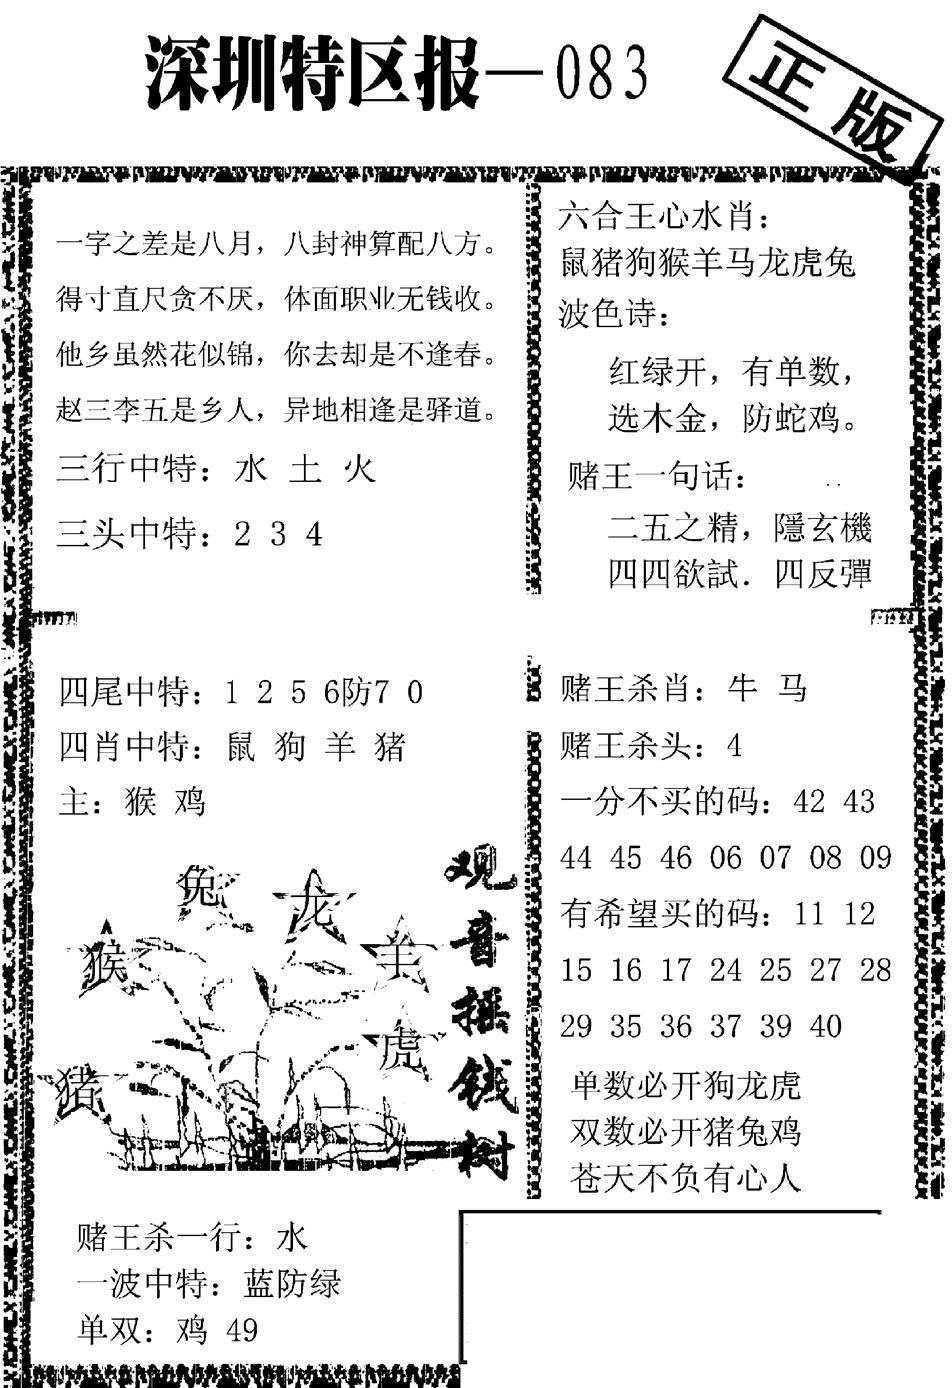 深圳特区报—083
正版
一字之差是八月，八封神算配八方。
得寸直尺贪不厌，体面职业无钱收。
他乡虽然花似锦，你去却是不逢春。
赵三李五是乡人，异地相逢是驿道。
三行中特：水 土 火
三头中特：2 3 4
六合王心水肖：
鼠猪狗猴羊马龙虎兔
波色诗：
红绿开，有单数，
选木金，防蛇鸡。
赌王一句话：
二五之精，隱玄機
四四欲試．四反彈
四尾中特：1 2 5 6防7 0
四肖中特：鼠 狗 羊 猪
主：猴 鸡
兔
龙
猴
羊
虎
猪
观音摇钱树
赌王杀一行：水
一波中特：蓝防绿
单双：鸡 49
赌王杀肖：牛 马
赌王杀头：4
一分不买的码：42 43
44 45 46 06 07 08 09
有希望买的码：11 12
15 16 17 24 25 27 28
29 35 36 37 39 40
单数必开狗龙虎
双数必开猪兔鸡
苍天不负有心人